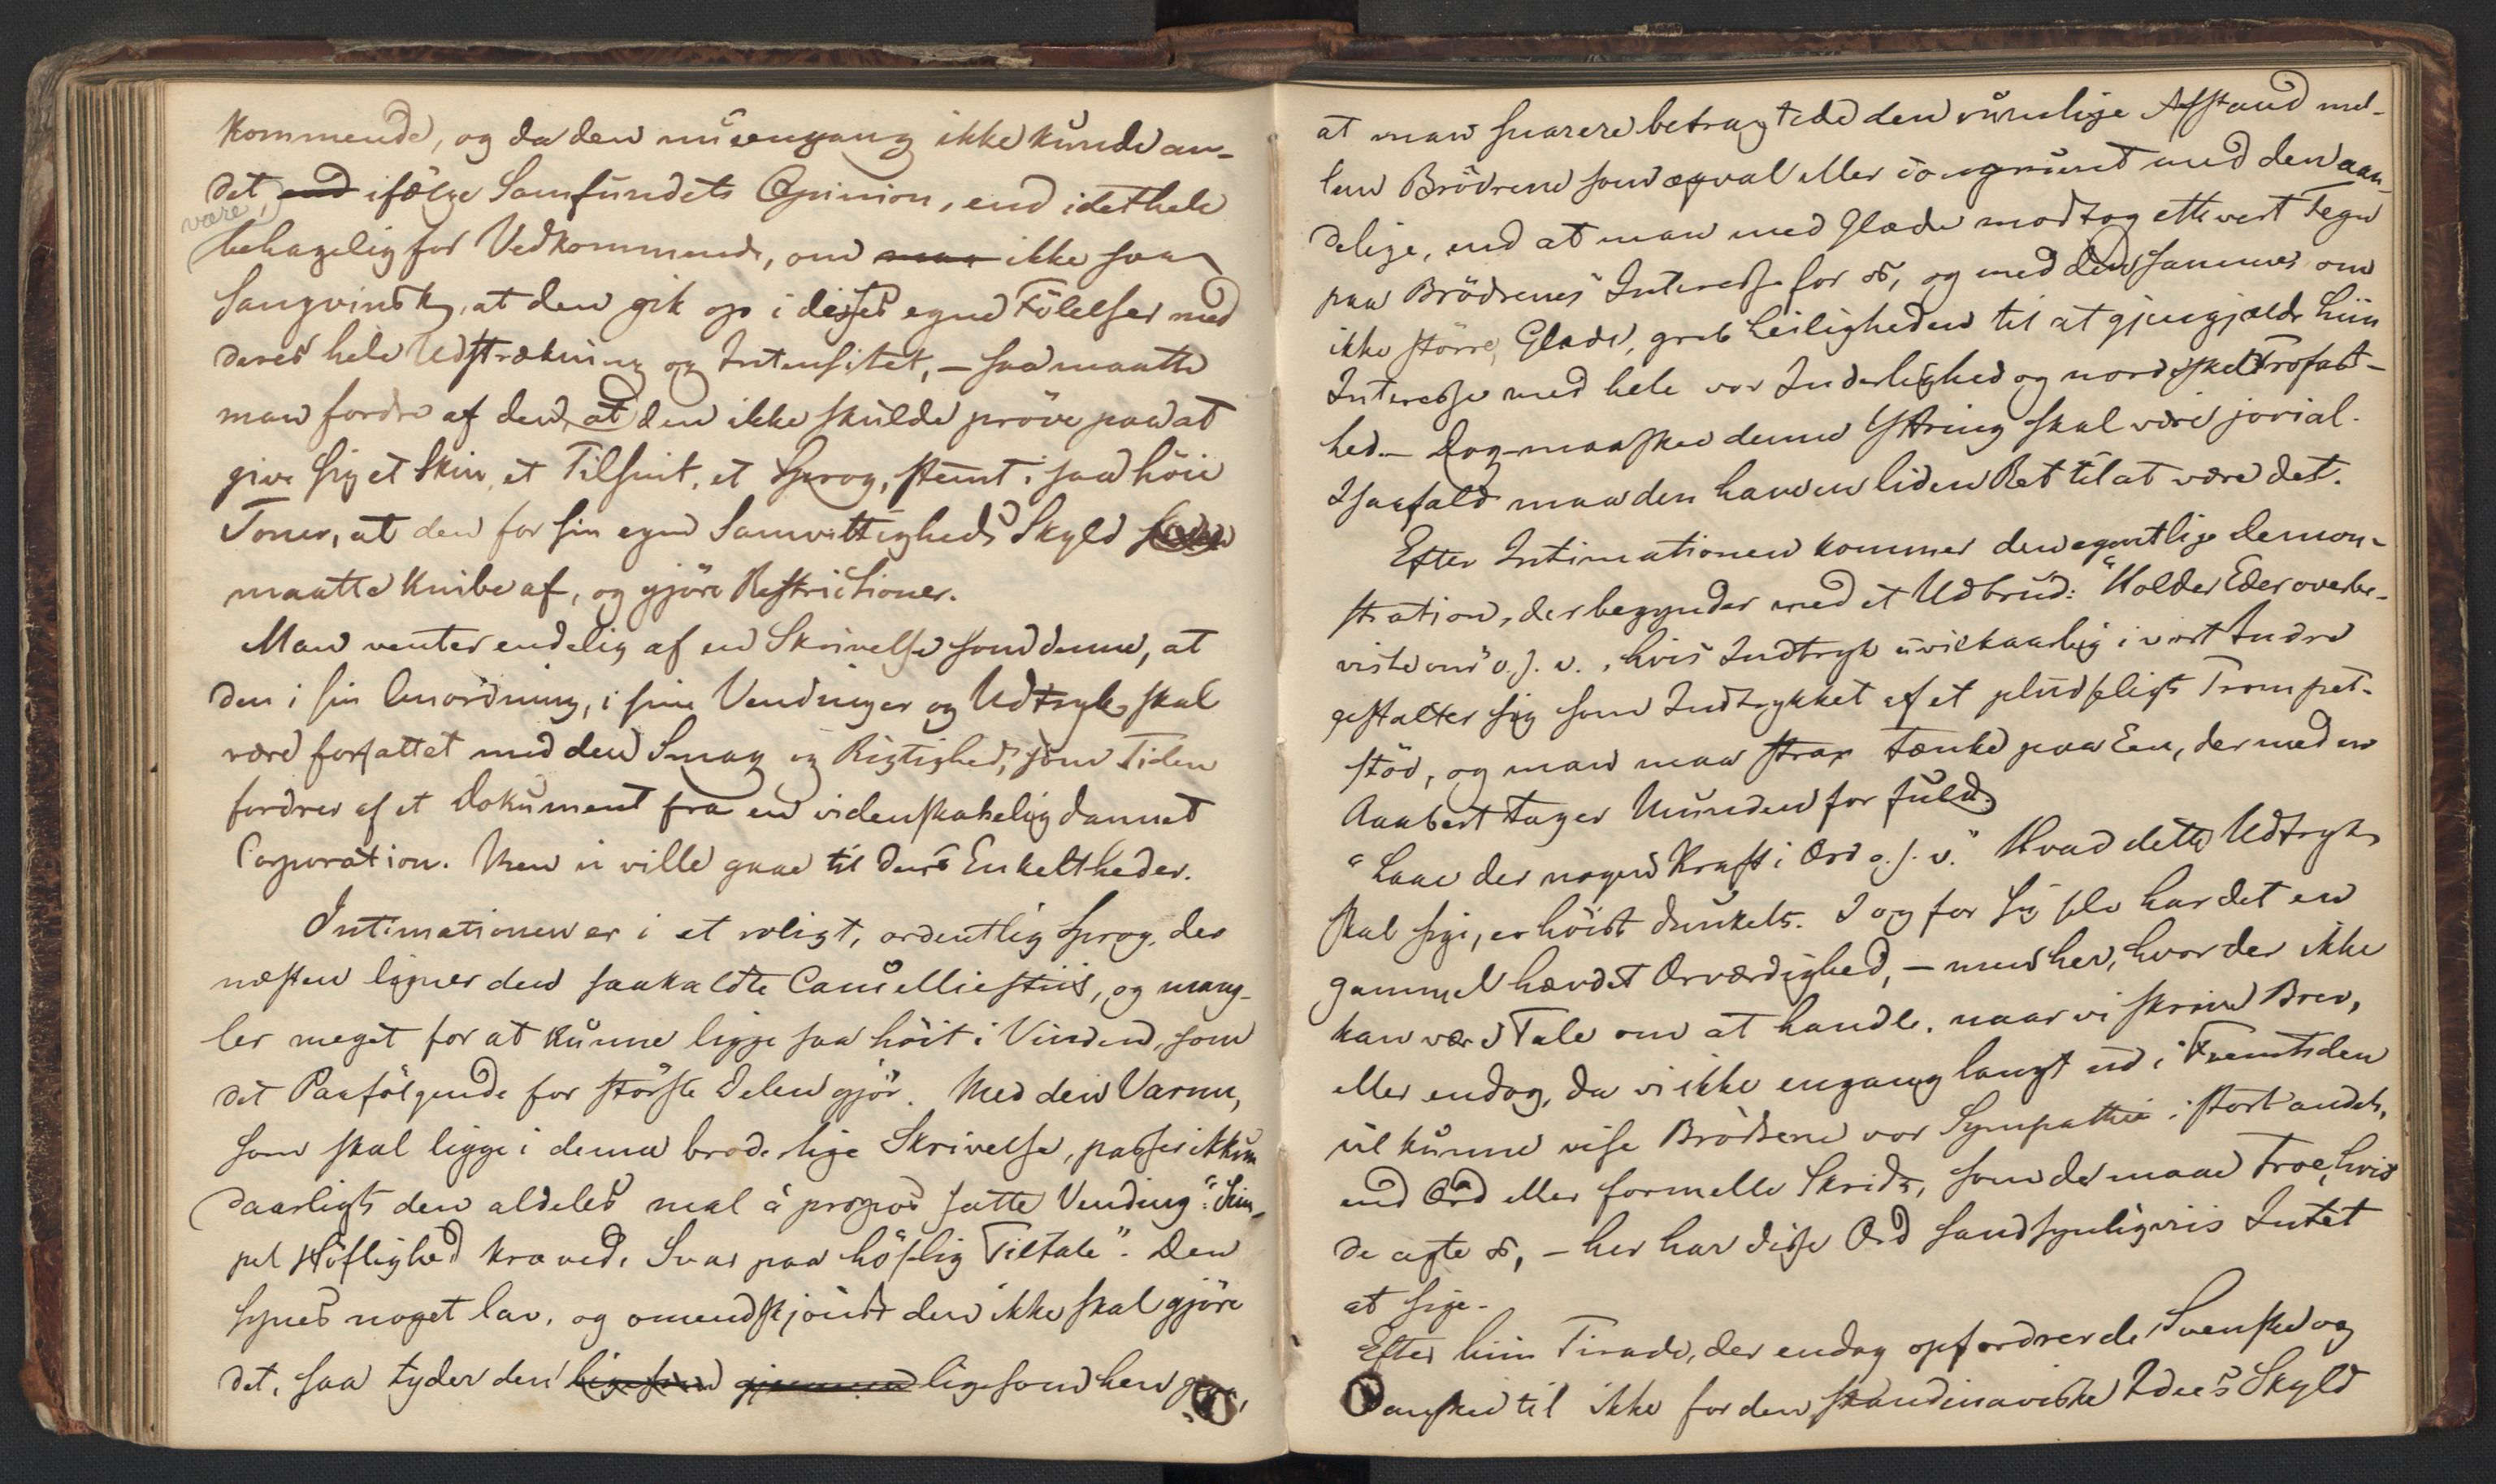 kommende, og da den nu engang ikke kunde an-
det, end ifølge Samfundets Opinion, end idethele
være,
behagelig for Vedkommende, om man ikke saa
sangvinsk, at den gik op i disses egne Følelser med
deres hele Udstrækning og Intensitet, – saa maatte
man fordre af den, at den ikke skulde prøve paa at
give sig et Skin, et Tilsnit, et Sprog, stemt i saa høie
Toner, at den for sin egen Samvittigheds Skyld
maatte knibe af, og gjøre Restrictioner.
Man venter endelig af en Skrivelse som denne, at
den i sin Anordning, i sine Vendinger og Udtryk, skal
være forfattet med den Smag og Rigtighed, som Tiden
fordrer af et Dokument fra en videnskabelig dannet
Corporation. Men vi ville gaae til dens Enkeltheder.
Intimationen er i et roligt, ordentlig Sprog, der
næsten ligner den saakaldte Cancelliestiil, og mang-
ler meget for at kunne ligge saa høit i Vinden, som
det Paafølgende for største Delen gjør. Med den Varme,
som skal ligge i denne broderlige Skrivelse, passer ikkun
daarligt den aldeles mal à propos satte Vending: "Sim-
pel Høflighed kræver, Svar paa høflig Tiltale". Den
synes noget lav, og omendskjøndt den ikke skal gjøre
det, saa tyder den ligesom gjennem ligesom hen paa,
at man snarere betragtede den rumlige Afstand mel-
lem Brødrene som æqval eller congruent med den aan-
delige, end at man med Glæde modtog ethvert Tegn
paa Brødrenes Interesse for os, og med den samme, om
ikke større, Glæde, greb Leiligheden til at gjengjælde hiin
Interesse med hele vor Inderlighed og nordiske Trofast-
hed. – Dog – maaskee denne Yttring skal være jovial.
Isaafald maa den have en liden Ret til at være det.
Efter Intimationen kommer den egentlige Demon-
stration, der begynder med et Udbrud: "Holder Eder overbe-
viste om" o. s. v., hvis Indtryk uvilkaarlig i vort Indre
gestalter sig som Indtrykket af et pludseligt Trompet-
stød, og man maa strax tænke paa Een, der med en
Aabert tager Munden for fuld.
"Laae der nogen Kraft i Ord o. s. v." Hvad dette Udtryk
skal sige, er høist dunkelt. I og for sig selv har det en
gammel hævdet Ærværdighed, – men her, hvor der ikke
kan være Tale om at handle, naar vi skrive Brev,
eller endog, da vi ikke engang langt ud i Fremtiden
vil kunne vise Brødrene vor Sympathie i stort andet,
end Ord eller formelle Skridt, som de maae troe, hvis
de agte os, – her har disse Ord sandsynligviis Intet
at sige.
Efter hiin Tirade, der endog opfordrer de Svenske og
Danske til ikke for den skandinaviske Idees Skyld